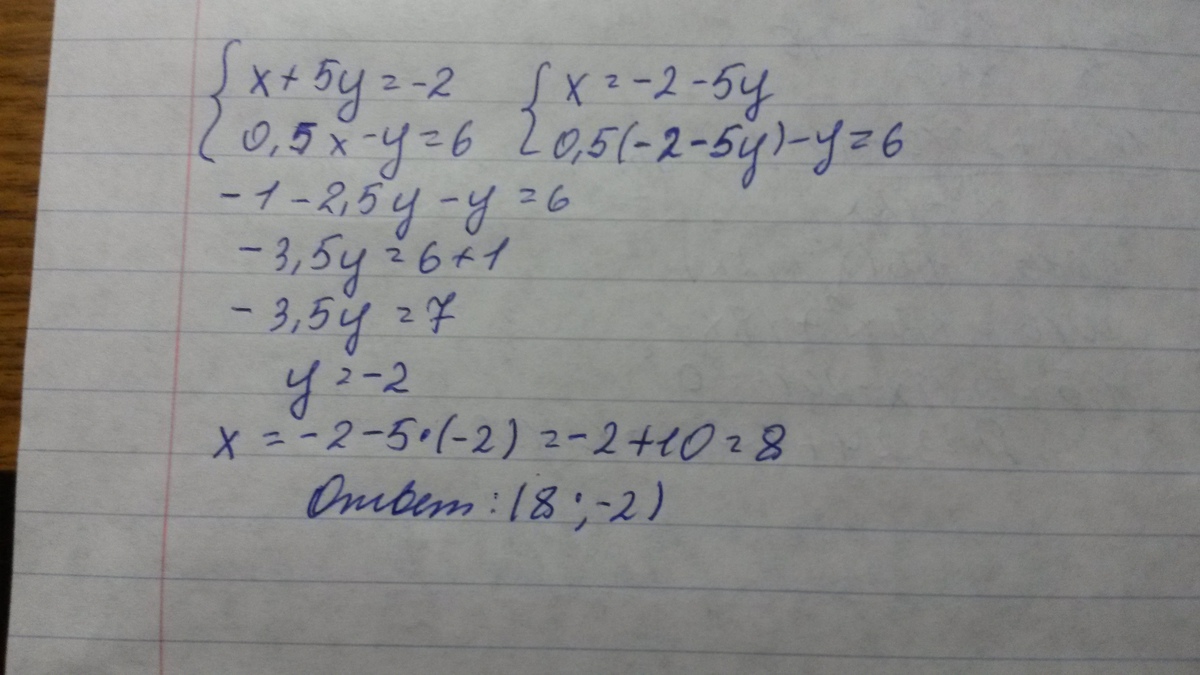 { x + 5y = -2   { x = -2 - 5y
{ 0,5x - y = 6   { 0,5(-2-5y) - y = 6
-1 - 2,5y - y = 6
-3,5y = 6 + 1
-3,5y = 7
y = -2
x = -2 - 5·(-2) = -2 + 10 = 8
Ответ: (8; -2)